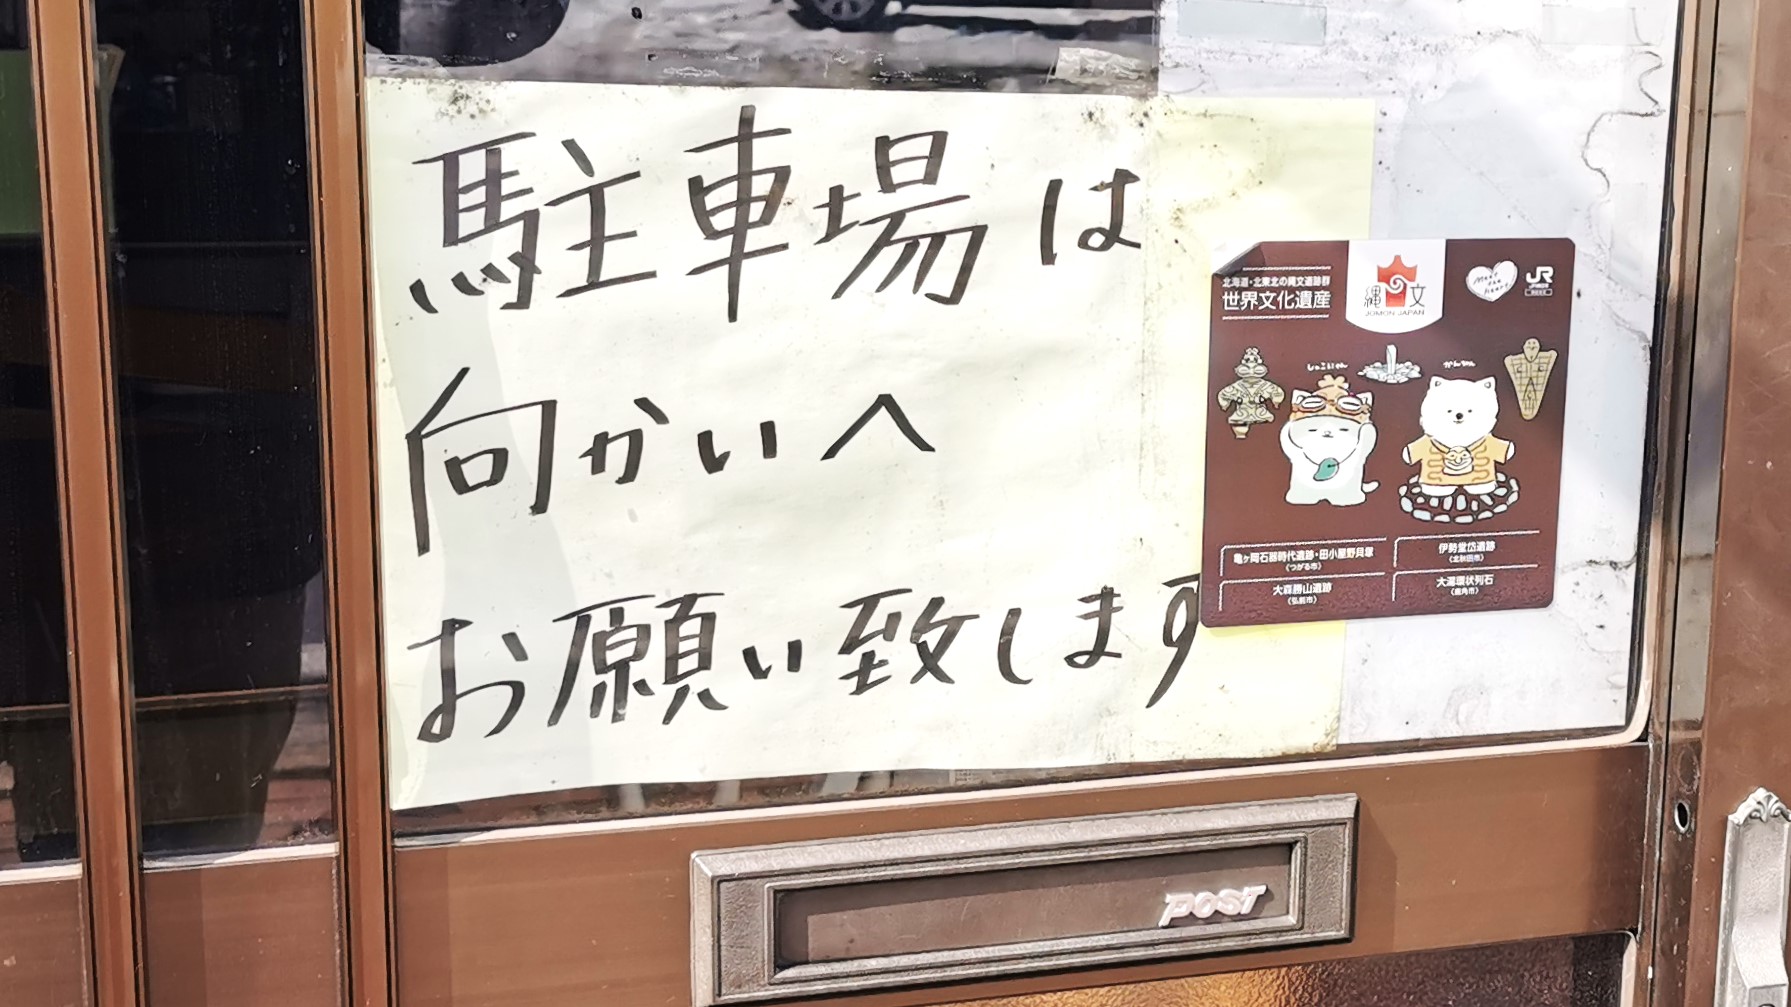 駐車場は
向かいへ
お願い致します
北海道・北東北の縄文遺跡群
世界文化遺産
縄文
JOMON JAPAN
JR
しゃこにゃん
亀ヶ岡石器時代遺跡・田小屋野貝塚
(つがる市)
伊勢堂岱遺跡
(北秋田市)
大森勝山遺跡
(弘前市)
大湯環状列石
(鹿角市)
POST